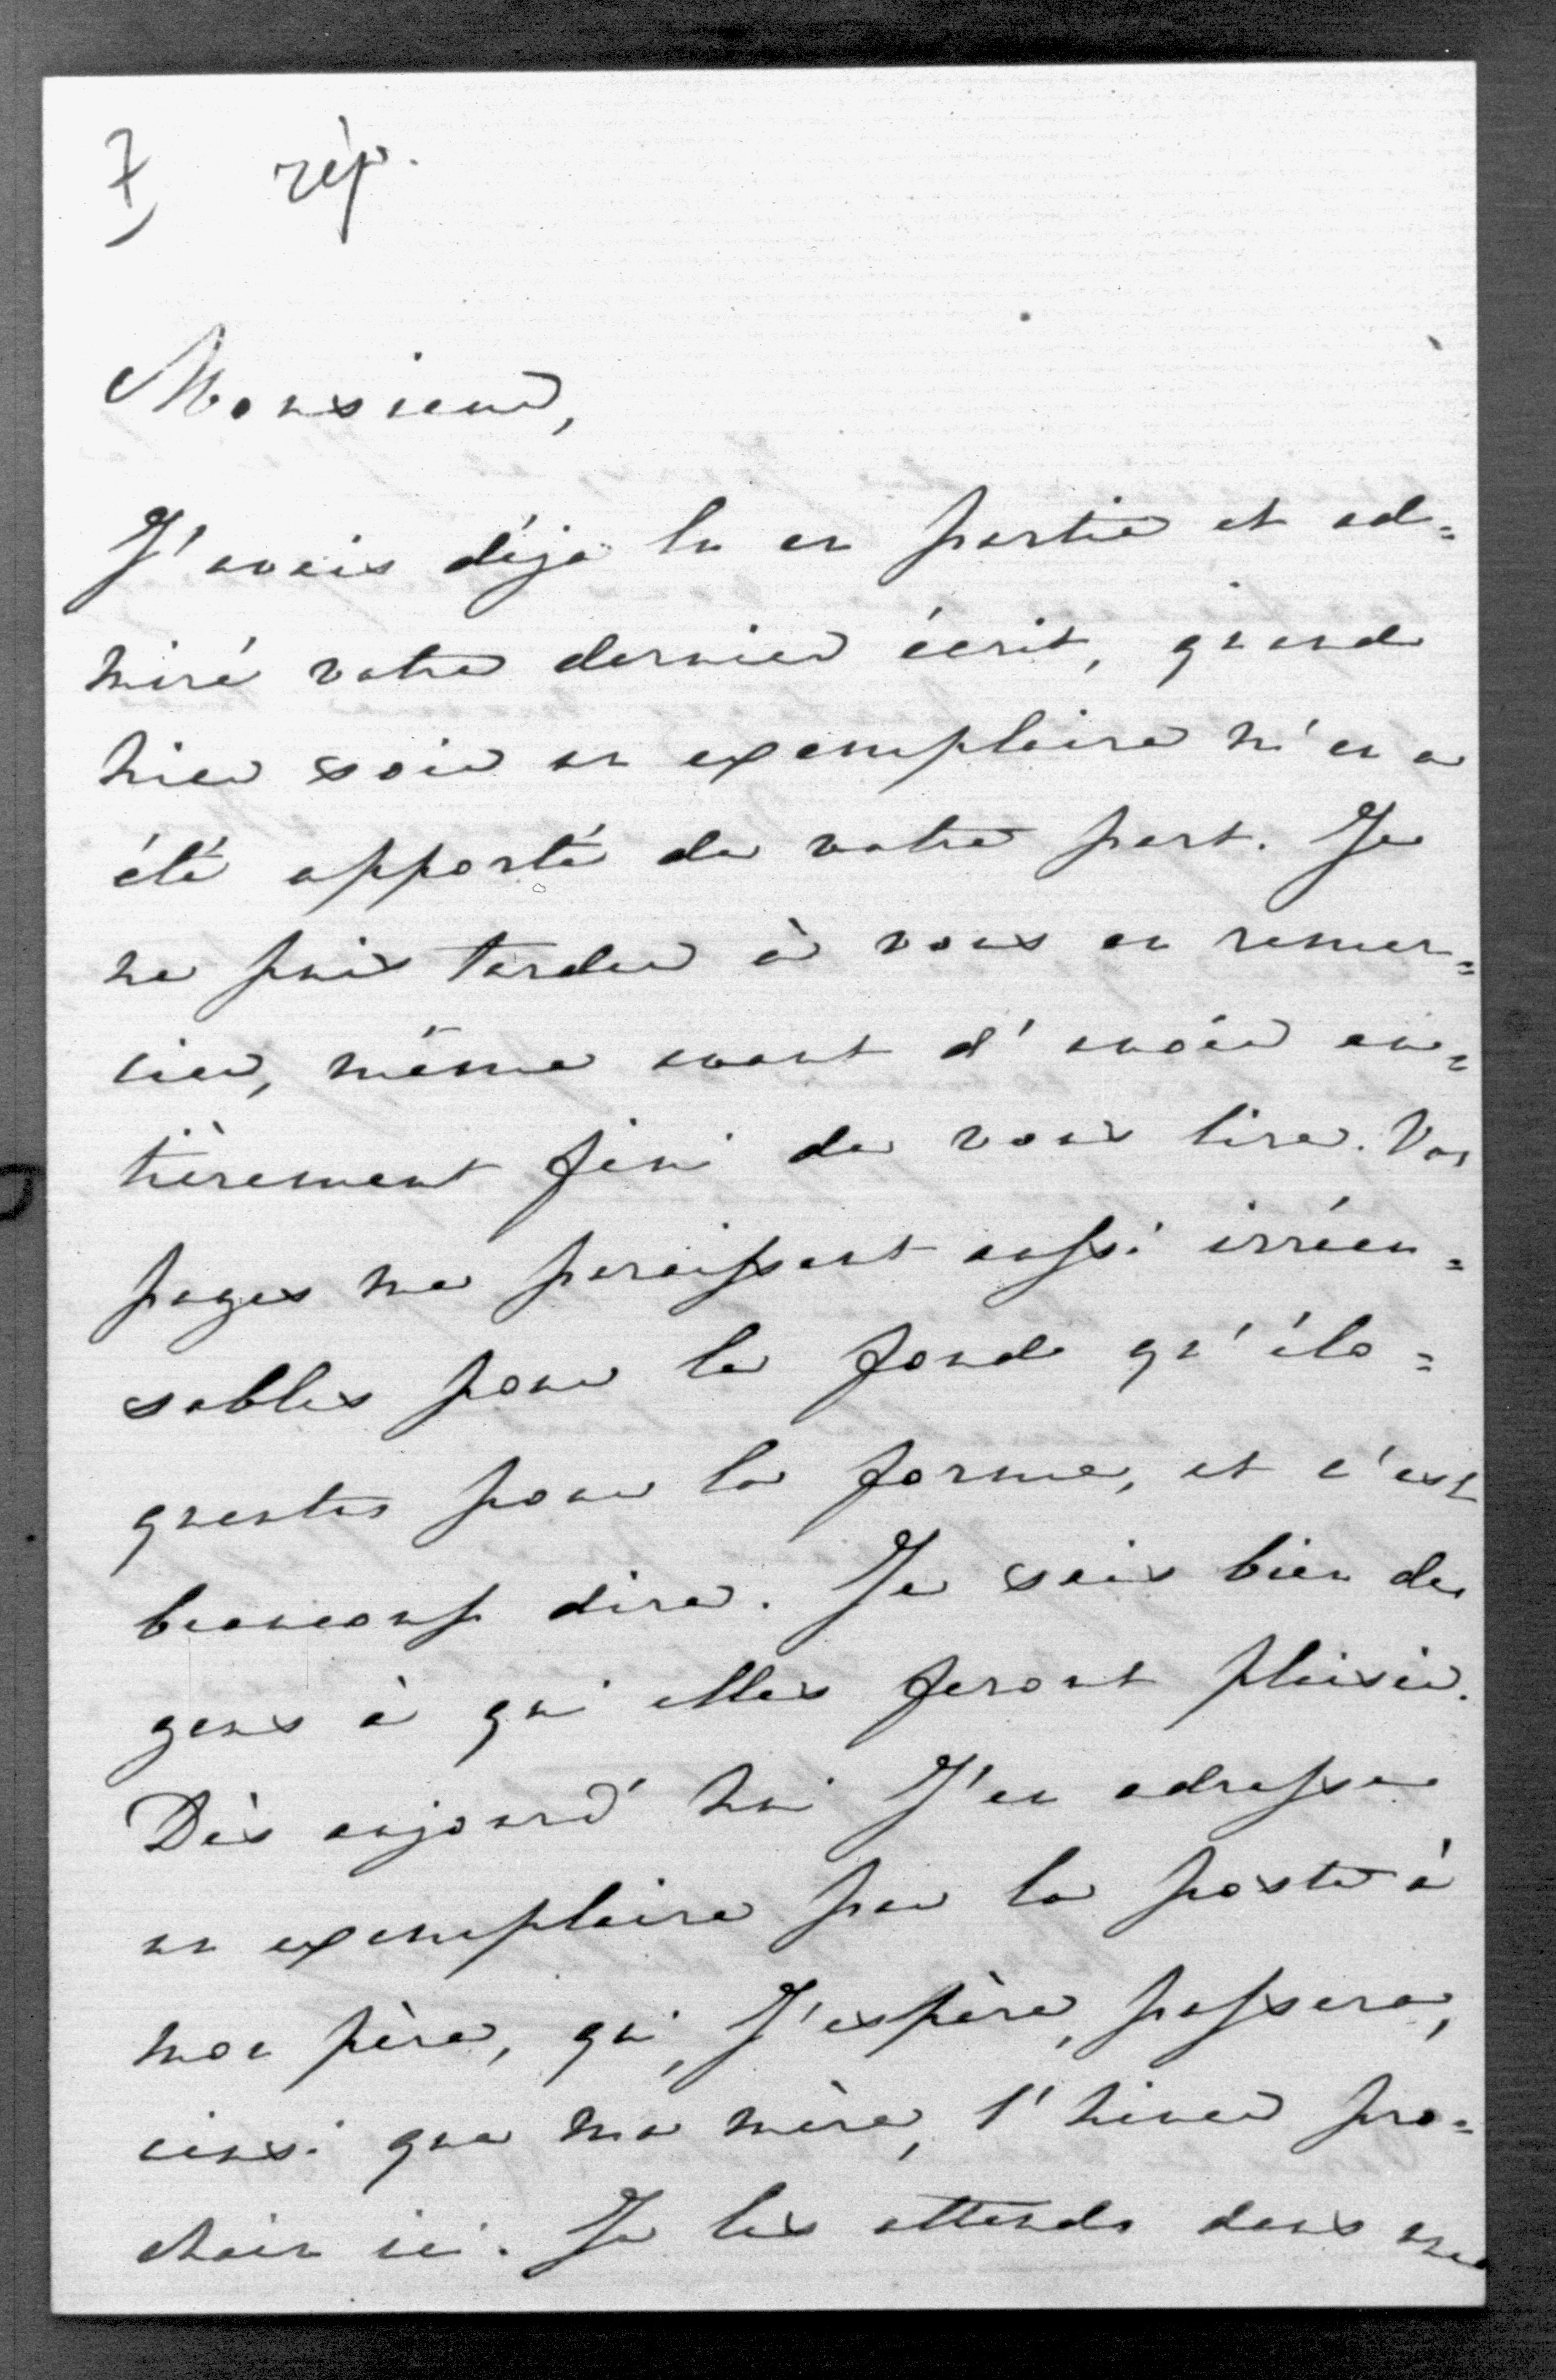 7 rép.
Monsieur,
J'avais déja lu en partie et ad=
miré votre dernier écrit, quand
hier soir un exemplaire m'en a
été apporté de votre part. Je
ne puis tarder à vous en remer=
cier, même avant d'avoir en=
tièrement fini de vous lire. Vos
pages me paraissent aussi irrécu=
sables pour le fond qu'élo=
quentes pour la forme, et c'est
beaucoup dire. Je sais bien des
gens à qui elles feront plaisir.
Dès aujourd'hui J'en adresse
un exemplaire par la poste à
mon père, qui, J'espère, passera,
ainsi que ma mère, l'hiver pro=
chain ici. Je les attends dans une